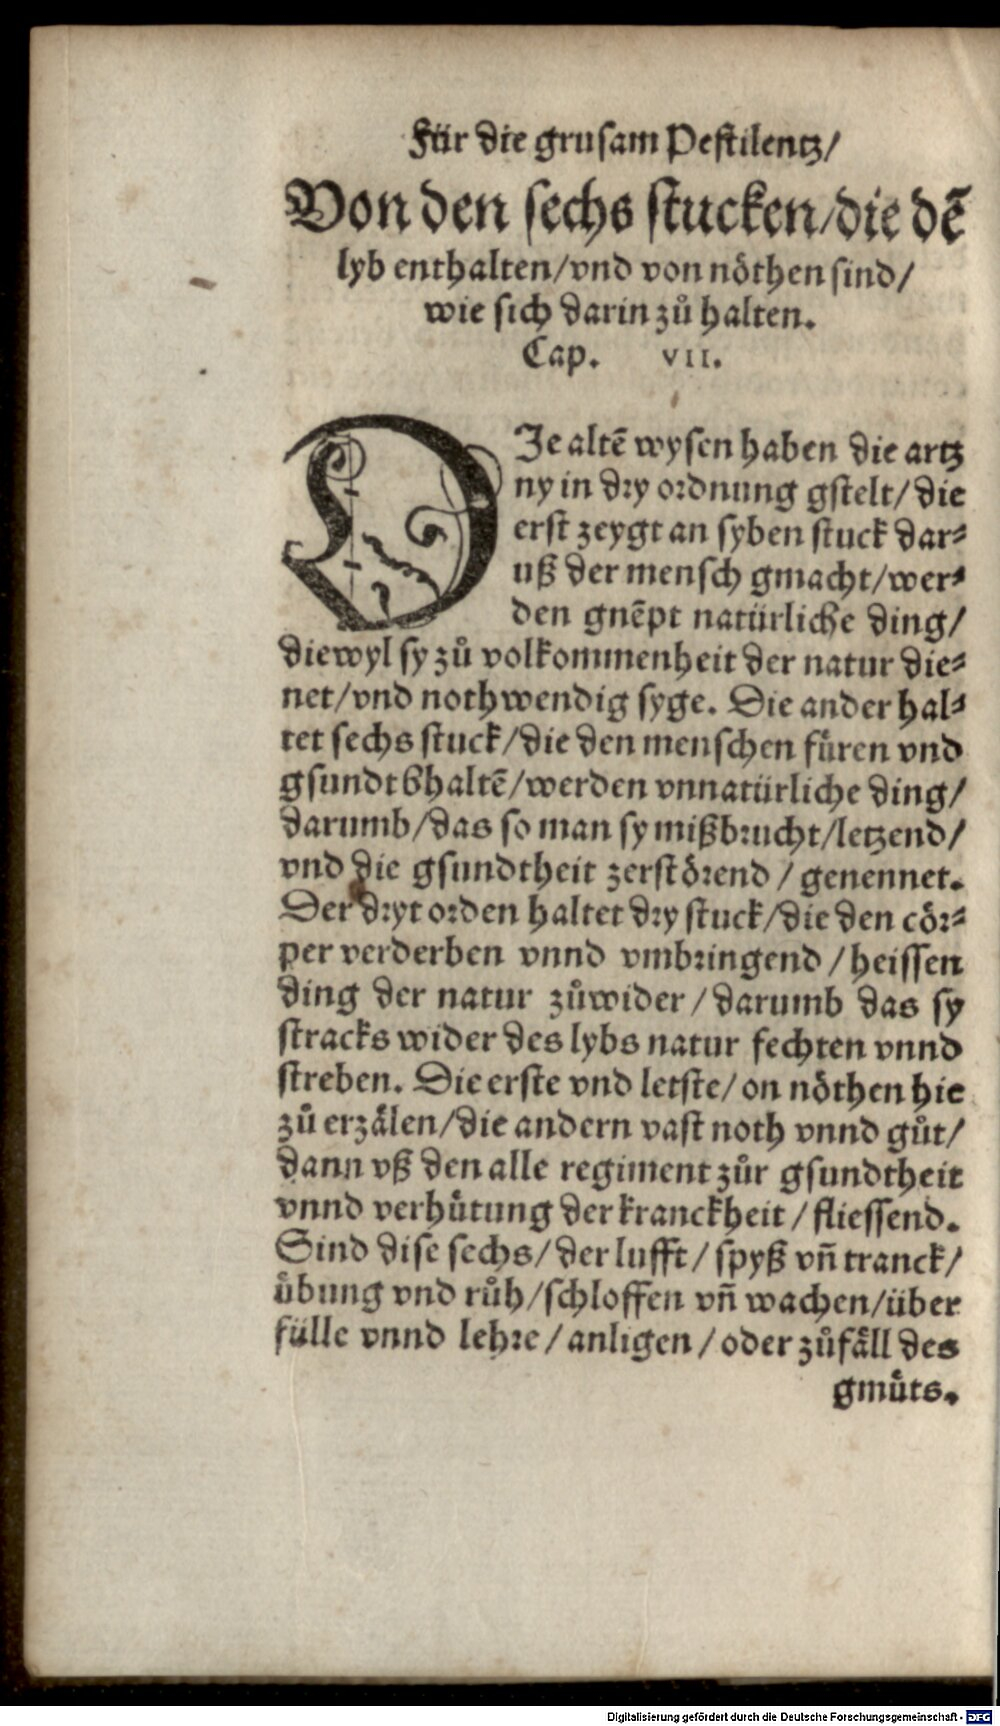 Für die grusam Pestilentz/
Von den sechs stucken/die dē
lyb enthalten/vnd von nöthen sind/
wie sich darin zů halten.
Cap. VII.
DJe altē wysen haben die artz
ny in dry ordnung gstelt/die
erst zeygt an syben stuck dar⸗
uß der mensch gmacht/wer⸗
den gnēpt natürliche ding/
diewyl sy zů volkommenheit der natur die⸗
net/vnd nothwendig syge. Die ander hal⸗
tet sechs stuck/die den menschen füren vnd
gsundt bhaltē/werden vnnatürliche ding/
darumb/das so man sy mißbrucht/letzend/
vnd die gsundtheit zerstörend/genennet.
Der dryt orden haltet dry stuck/die den cör⸗
per verderben vnnd vmbringend/heissen
ding der natur zůwider/darumb das sy
stracks wider des lybs natur fechten vnnd
streben. Die erste vnd letste/on nöthen hie
zů erzälen/die andern vast noth vnnd gůt/
dann vß den alle regiment zůr gsundtheit
vnnd verhütung der kranckheit/fliessend.
Sind dise sechs/der lufft/spyß vñ tranck/
übung vnd růh/schloffen vñ wachen/über
fülle vnnd lehre/anligen/oder zůfäll des
gmüts.
Digitalisierung gefördert durch die Deutsche Forschungsgemeinschaft - DFG